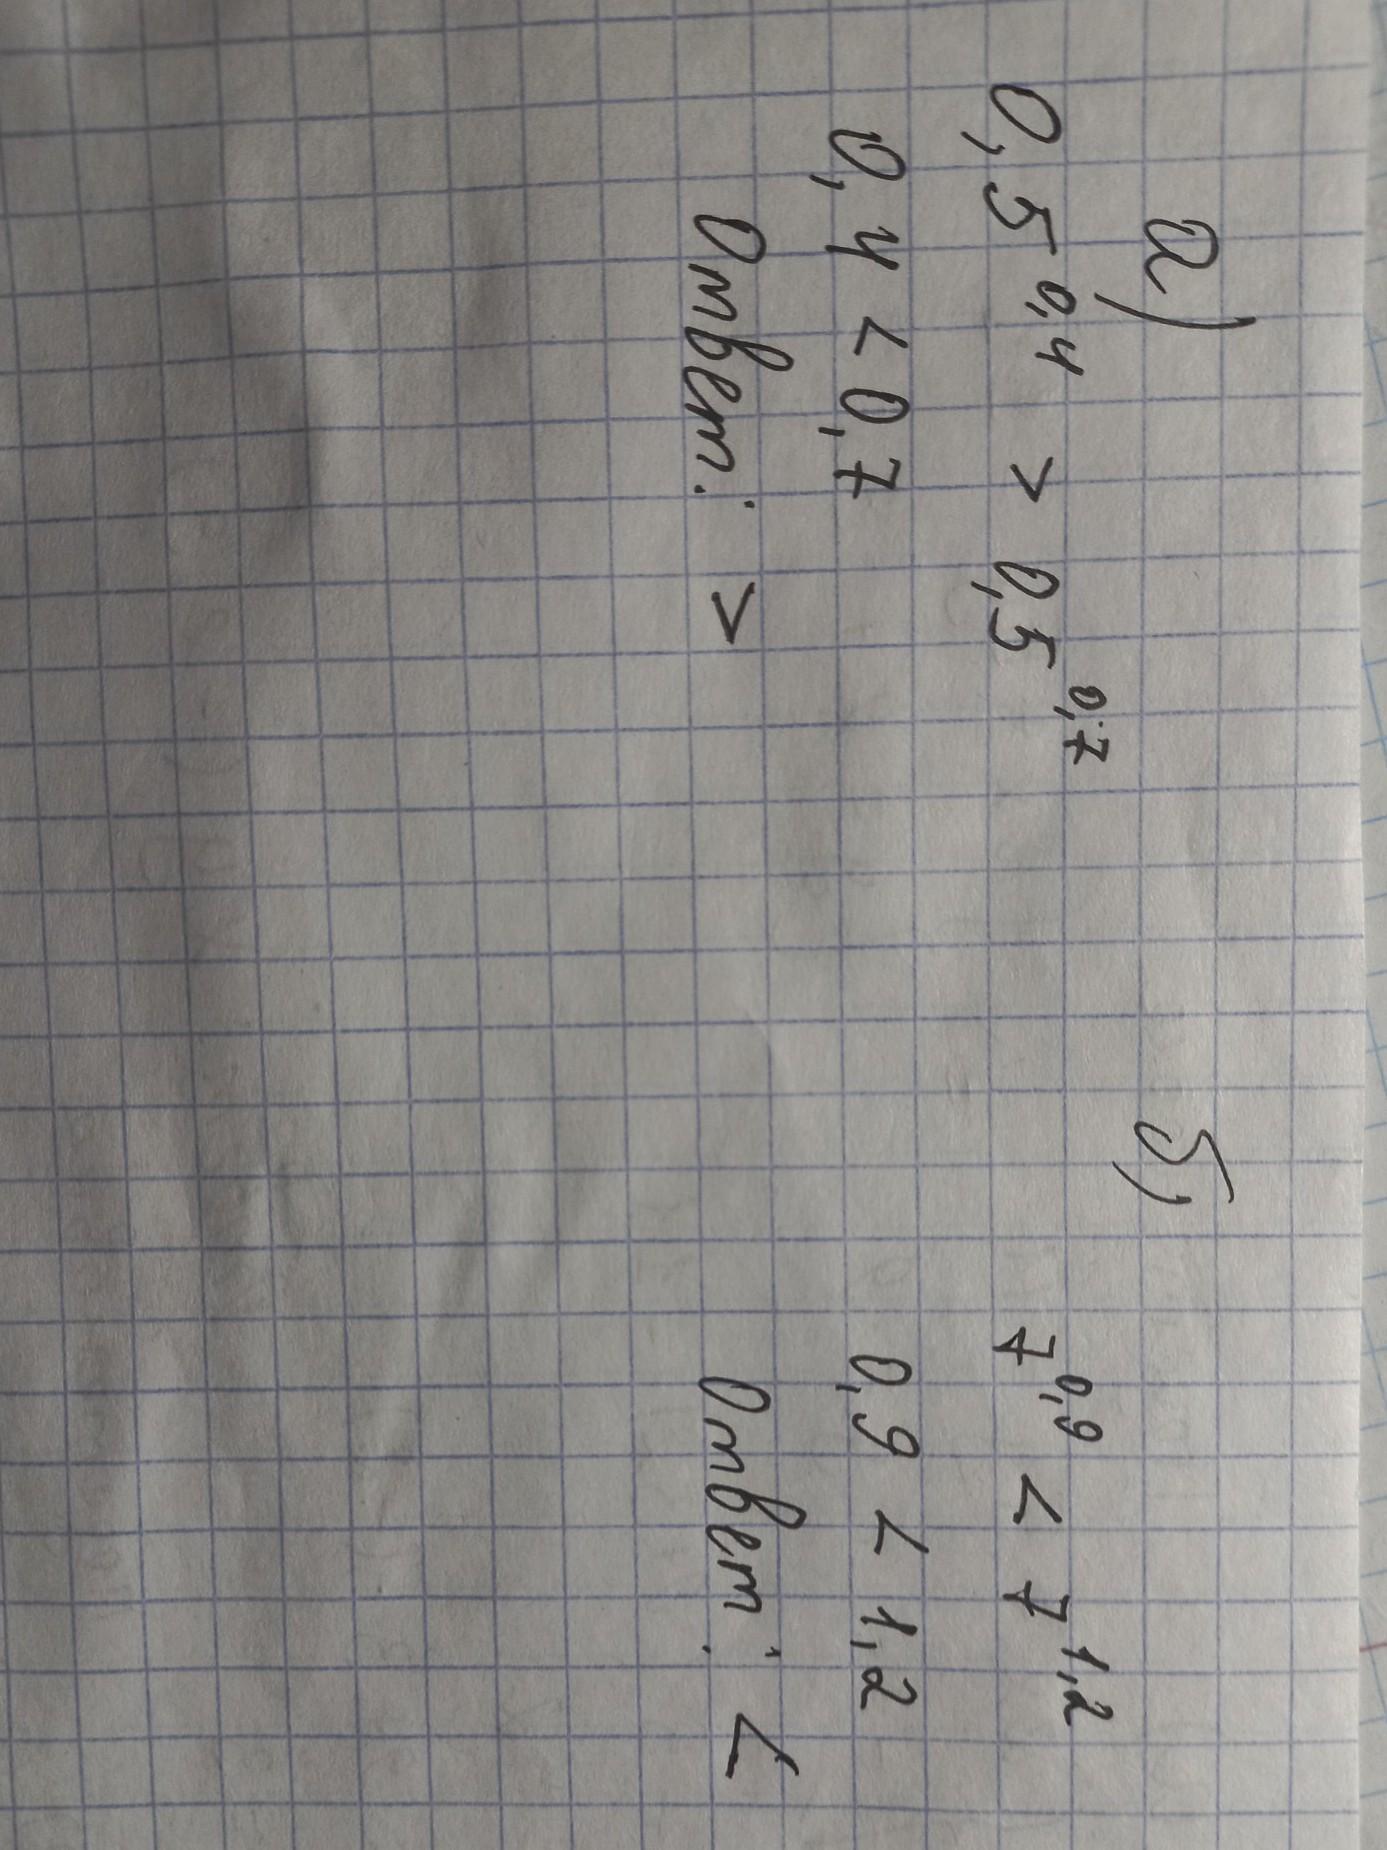 а)
0,5^0,4 > 0,5^0,7
0,4 < 0,7
Ответ: >
б)
7^0,9 < 7^1,2
0,9 < 1,2
Ответ: <